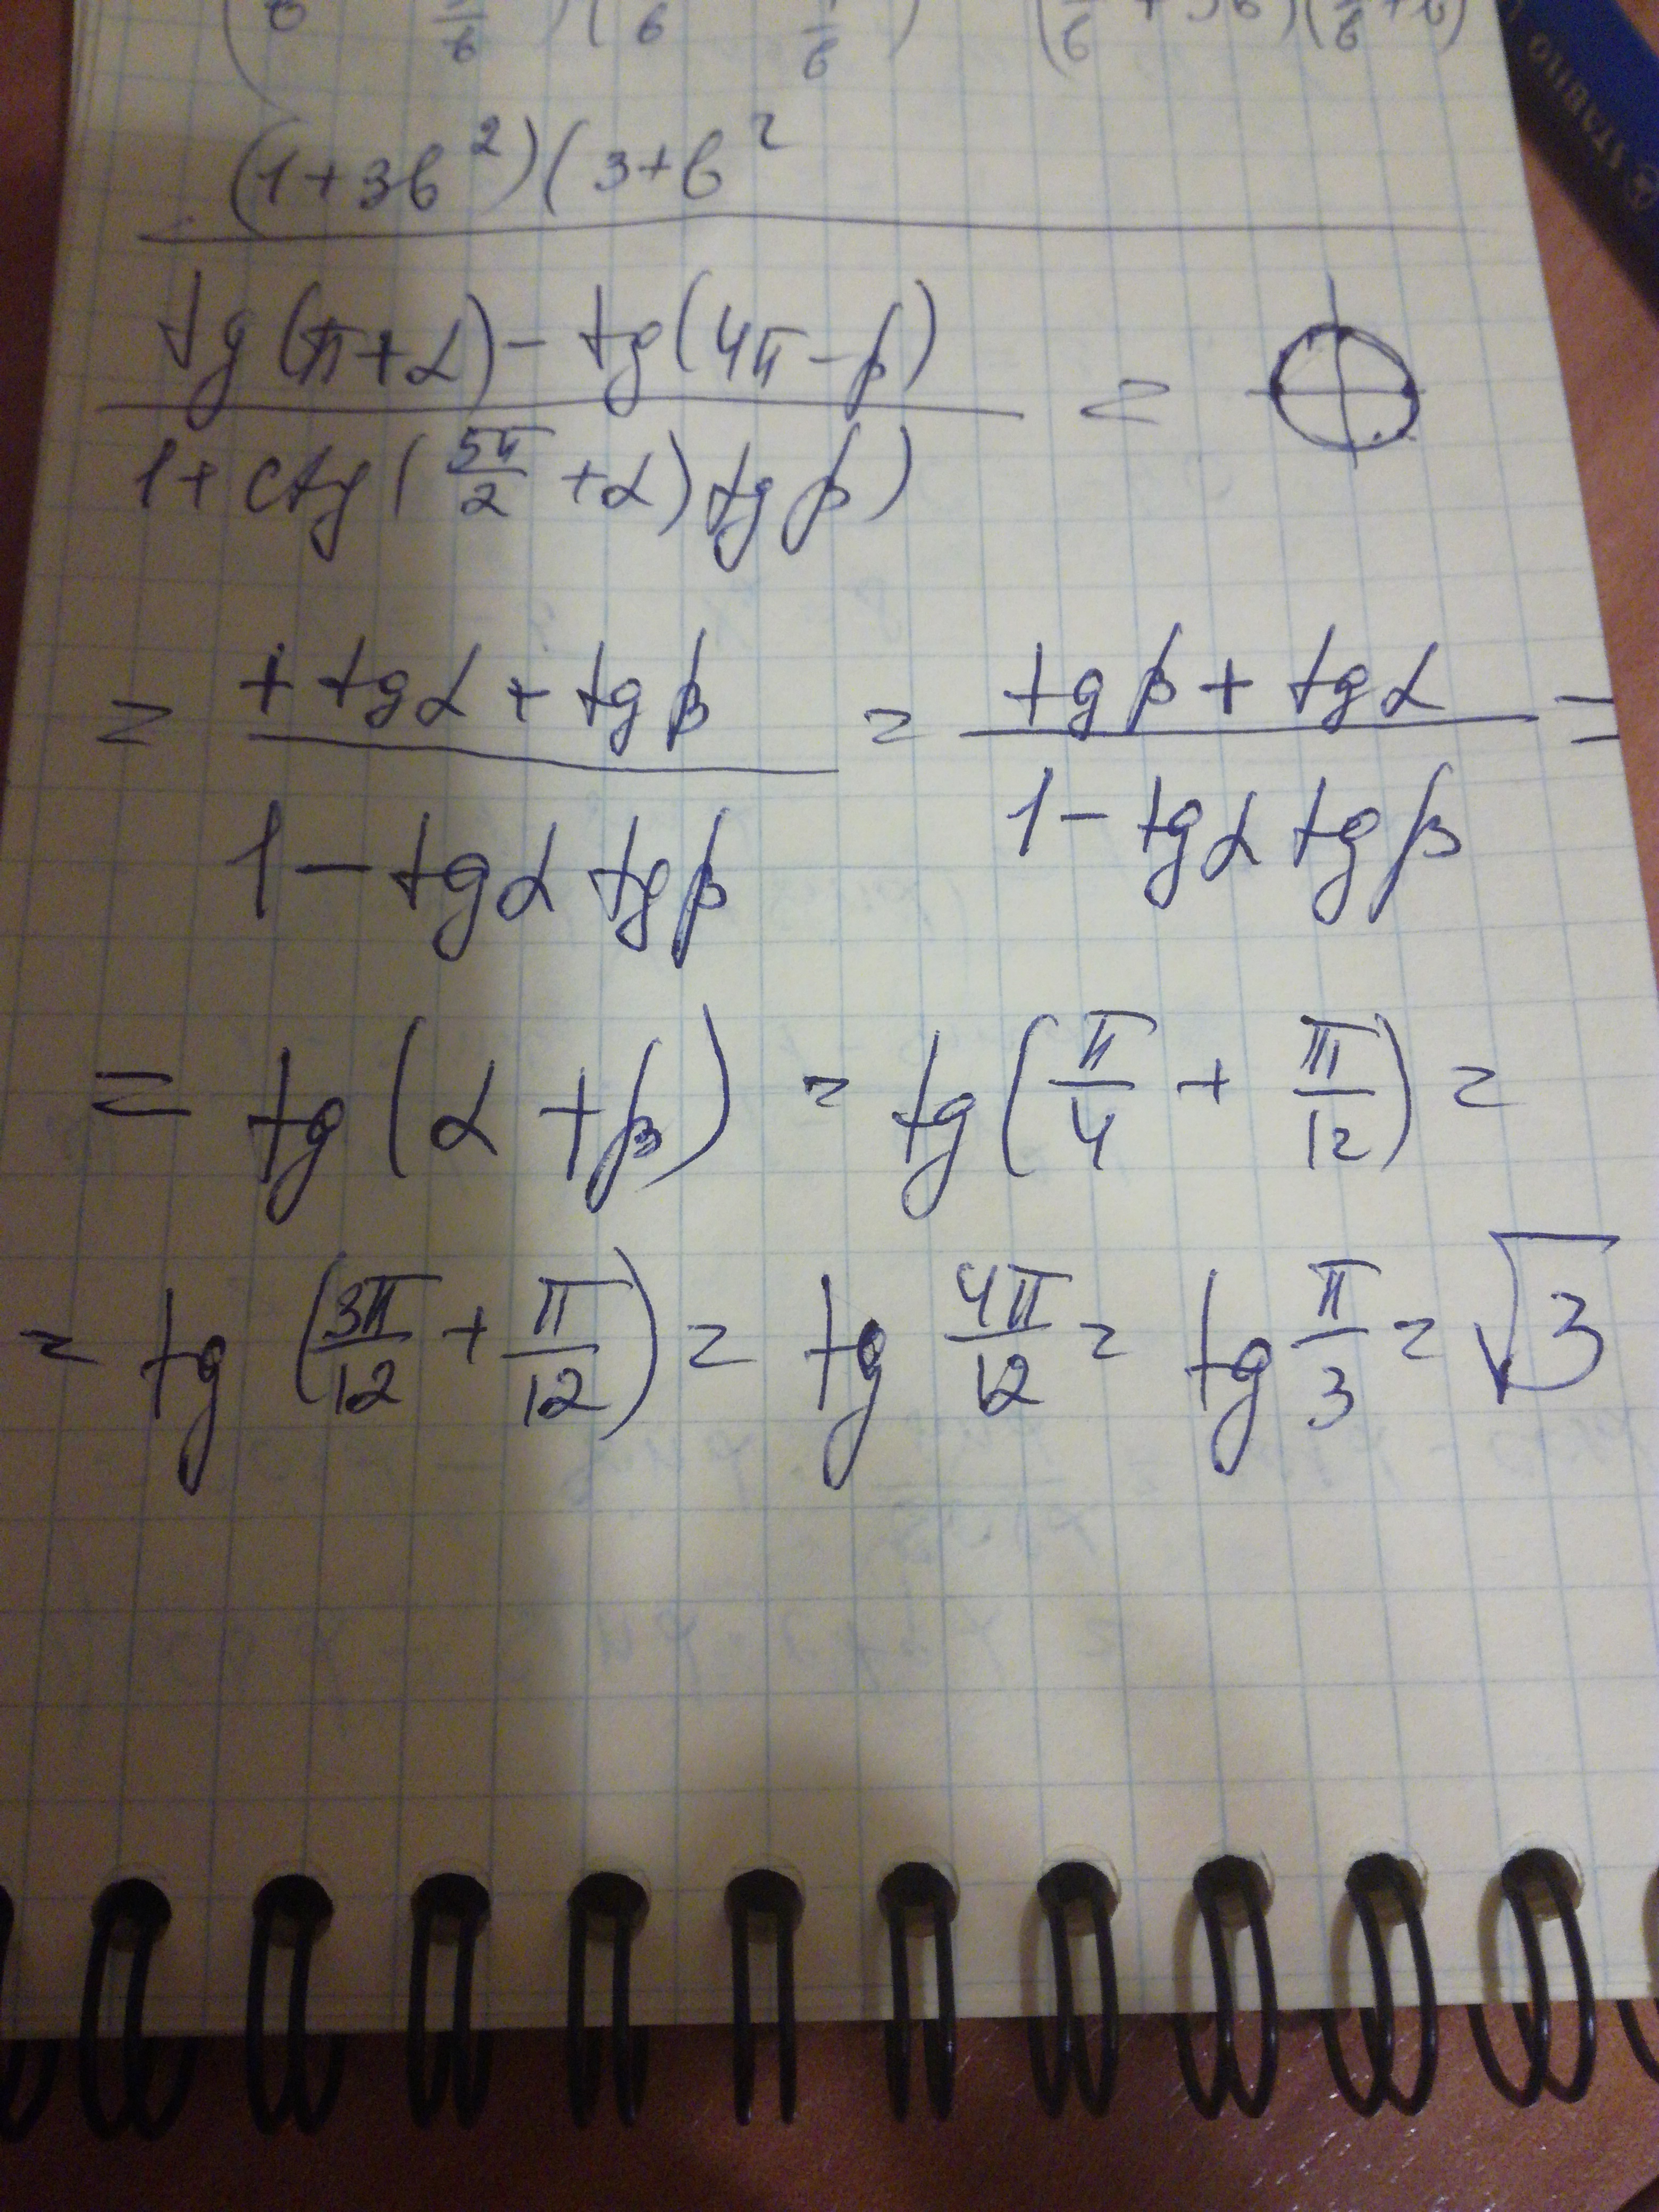 (1+3b²)(3+b²
tg(π+α) - tg(4π-β)
1+ctg(5π/2 +α)tgβ) =
= + tgα + tgβ / 1 - tgα tgβ = tgβ + tgα / 1 - tgα tgβ =
= tg(α+β) = tg(π/4 + π/12) =
= tg(3π/12 + π/12) = tg 4π/12 = tg π/3 = √3
STABILO